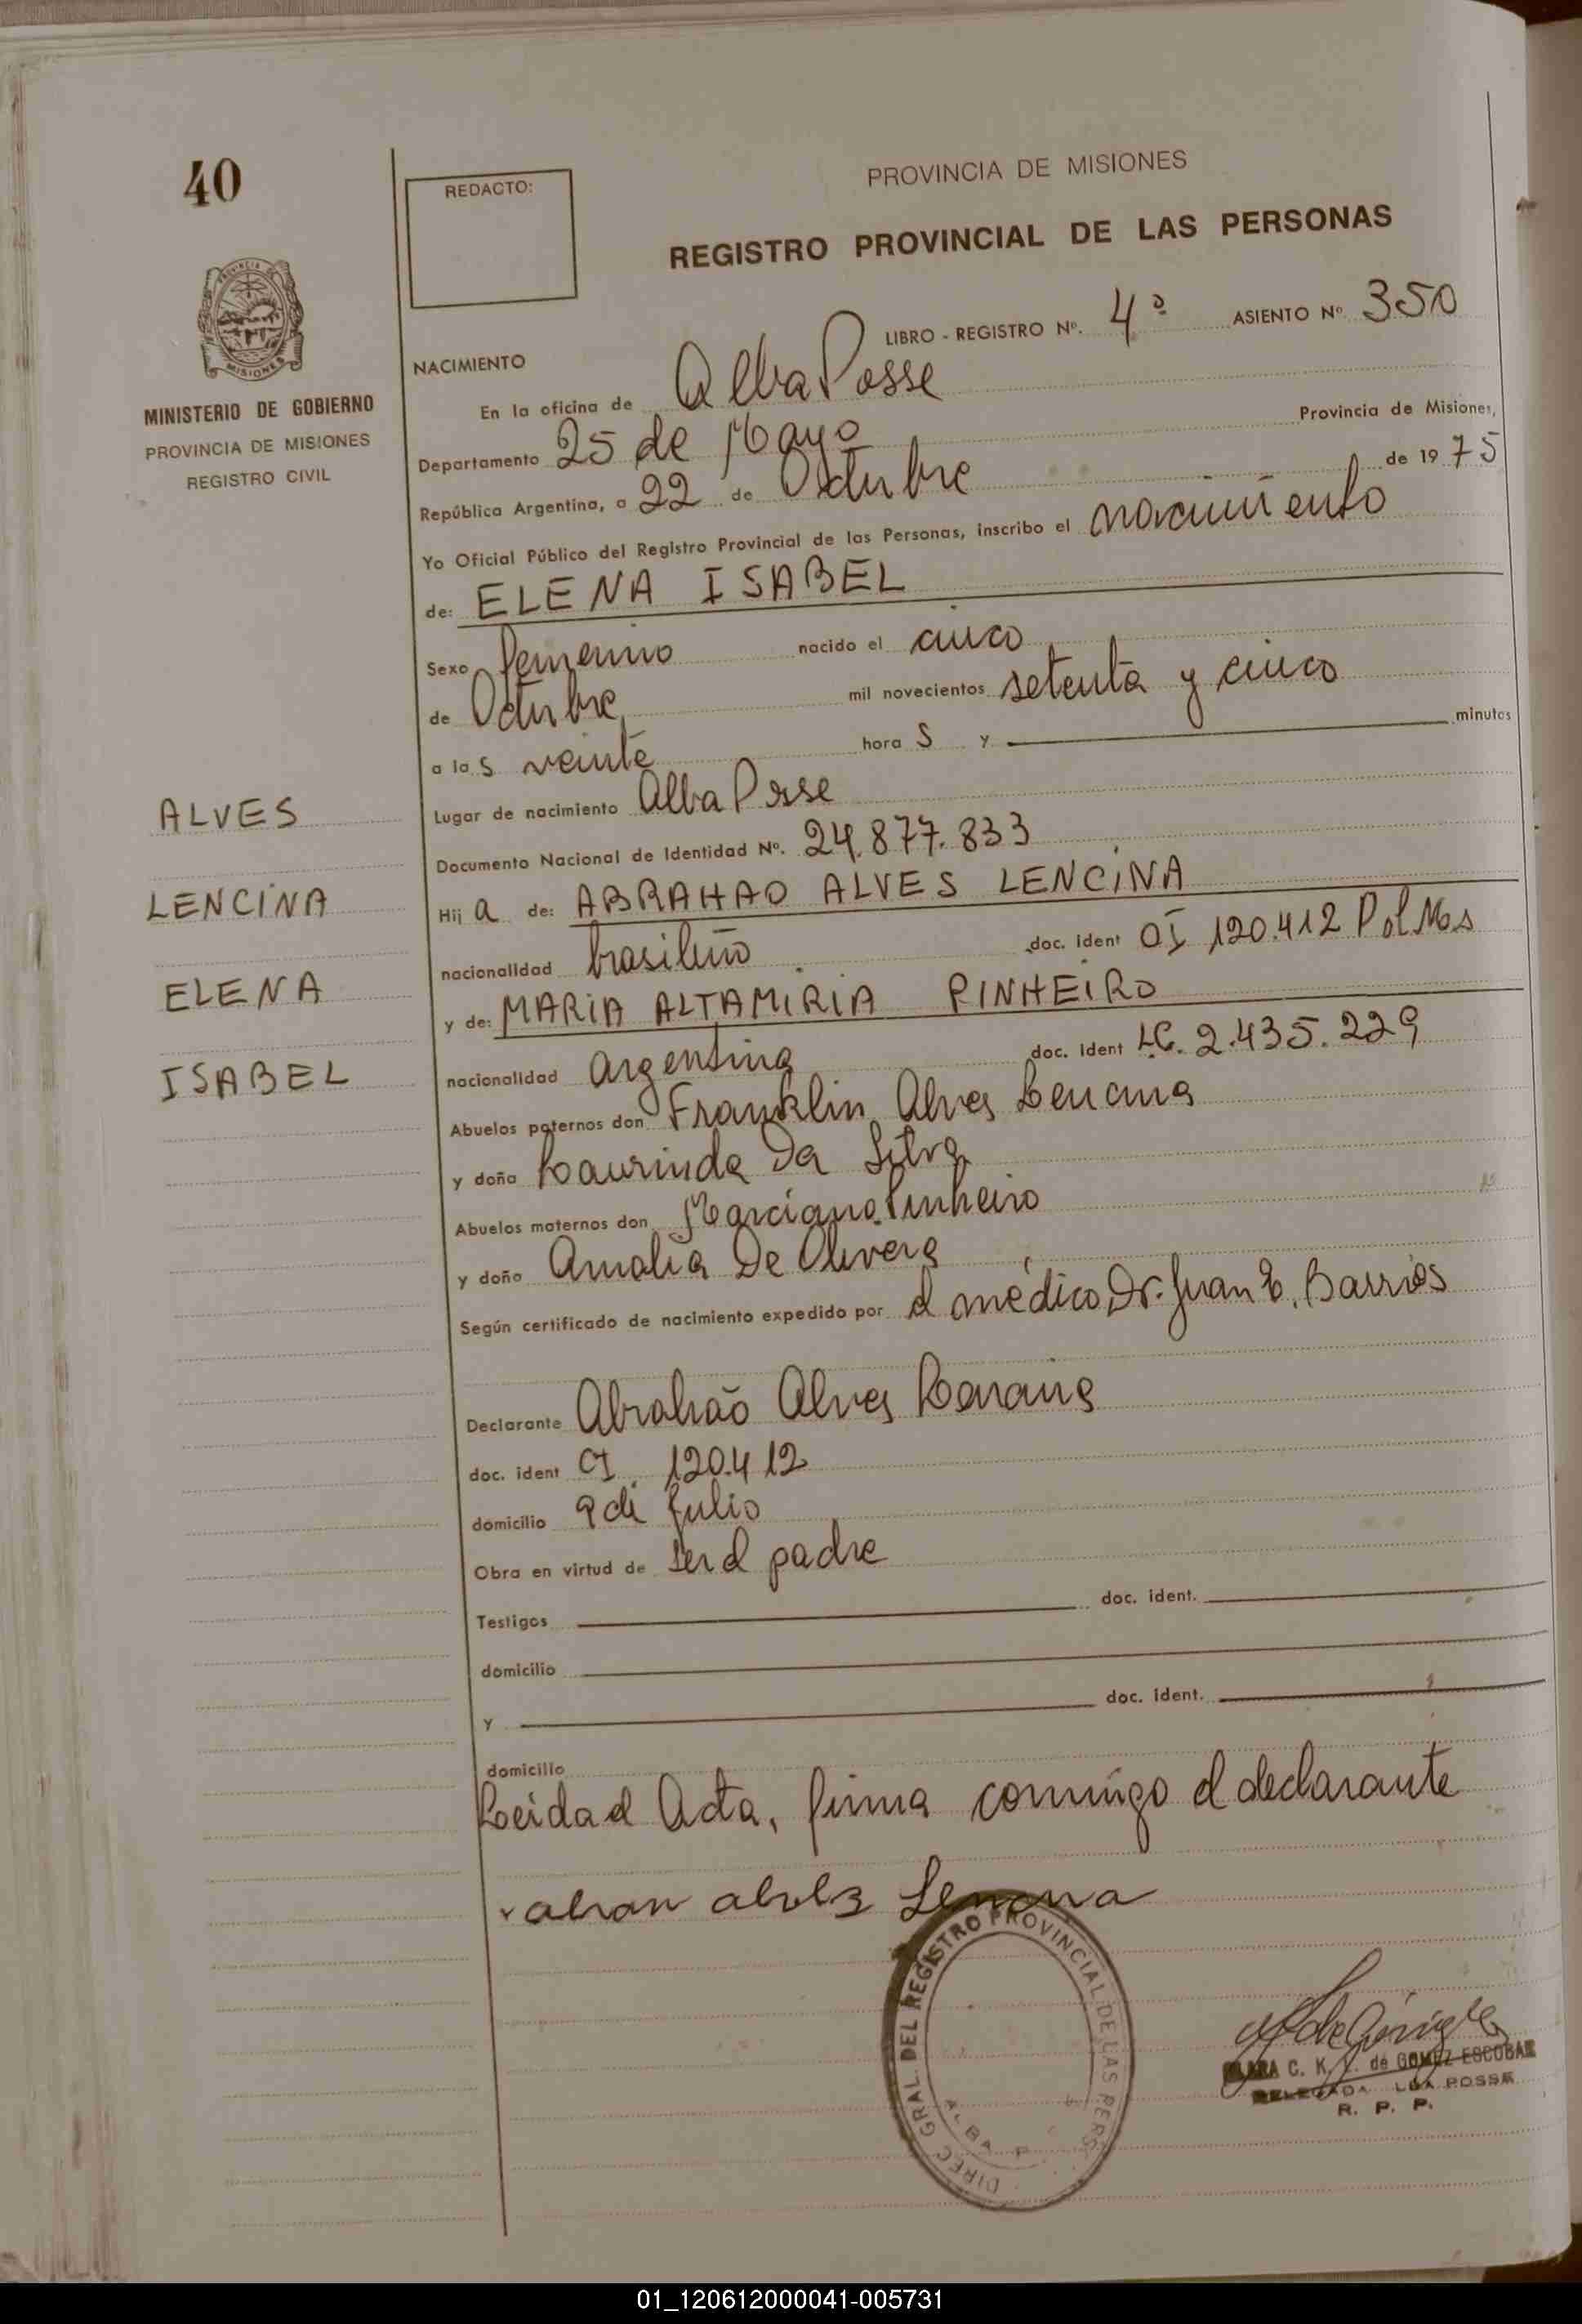 40
REDACTO:
PROVINCIA DE MISIONES
REGISTRO PROVINCIAL DE LAS PERSONAS
PROVINCIA DE
MISIONES
MINISTERIO DE GOBIERNO
PROVINCIA DE MISIONES
REGISTRO CIVIL
LIBRO - REGISTRO Nº. 4º ASIENTO Nº 350
NACIMIENTO
En la oficina de Alba Posse
Provincia de Misiones,
Departamento 25 de Mayo
República Argentina, a 22 de Octubre de 19 75
Yo Oficial Público del Registro Provincial de las Personas, inscribo el nacimiento
de: ELENA ISABEL
Sexo femenino nacido el cinco
de Octubre mil novecientos setenta y cinco
a la s veinte hora s y minutos
Lugar de nacimiento Alba Posse
Documento Nacional de Identidad Nº. 24.877.833
Hij a de: ABRAHAO ALVES LENCINA
nacionalidad brasileño doc. ident CI 120.412 Pol Mos
y de: MARIA ALTAMIRIA PINHEIRO
nacionalidad argentina doc. ident LC. 2.435.229
Abuelos paternos don Franklin Alves Lencina
y doña Laurinda Da Silva
Abuelos maternos don Marciano Pinheiro
y doña Amalia De Olivera
Según certificado de nacimiento expedido por el médico Dr. Juan E. Barrios
Declarante Abrahaõ Alves Lencina
doc. ident CI 120.412
domicilio 9 de Julio
Obra en virtud de ser el padre
Testigos doc. ident.
domicilio
y doc. ident.
domicilio
Leida el Acta, firma conmigo el declarante
ALVES
LENCINA
ELENA
ISABEL
abran alvls Lencina
DIREC. GRAL. DEL REGISTRO PROVINCIAL DE LAS PERS.
ALBA P
CLARA C. K. de GOMEZ ESCOBAR
DELEGADA POSSE
R. P. P.
01_120612000041-005731